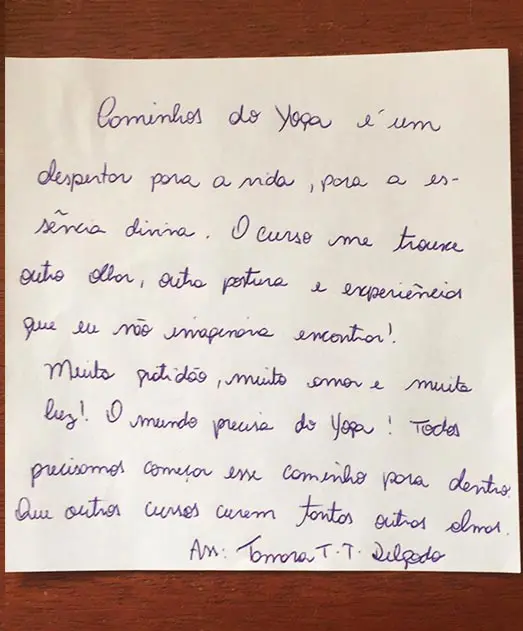 Caminhos do Yoga é um
despertar para a vida, para a es-
sência divina. O curso me trouxe
outro olhar, outra postura e experiências
que eu não imaginava encontrar!
Muita gratidão, muito amor e muita
luz! O mundo precisa do Yoga! Todos
precisamos começar esse caminho para dentro.
Que outros cursos curem tantas outras almas.
Ass: Tamara T.T. Delgado